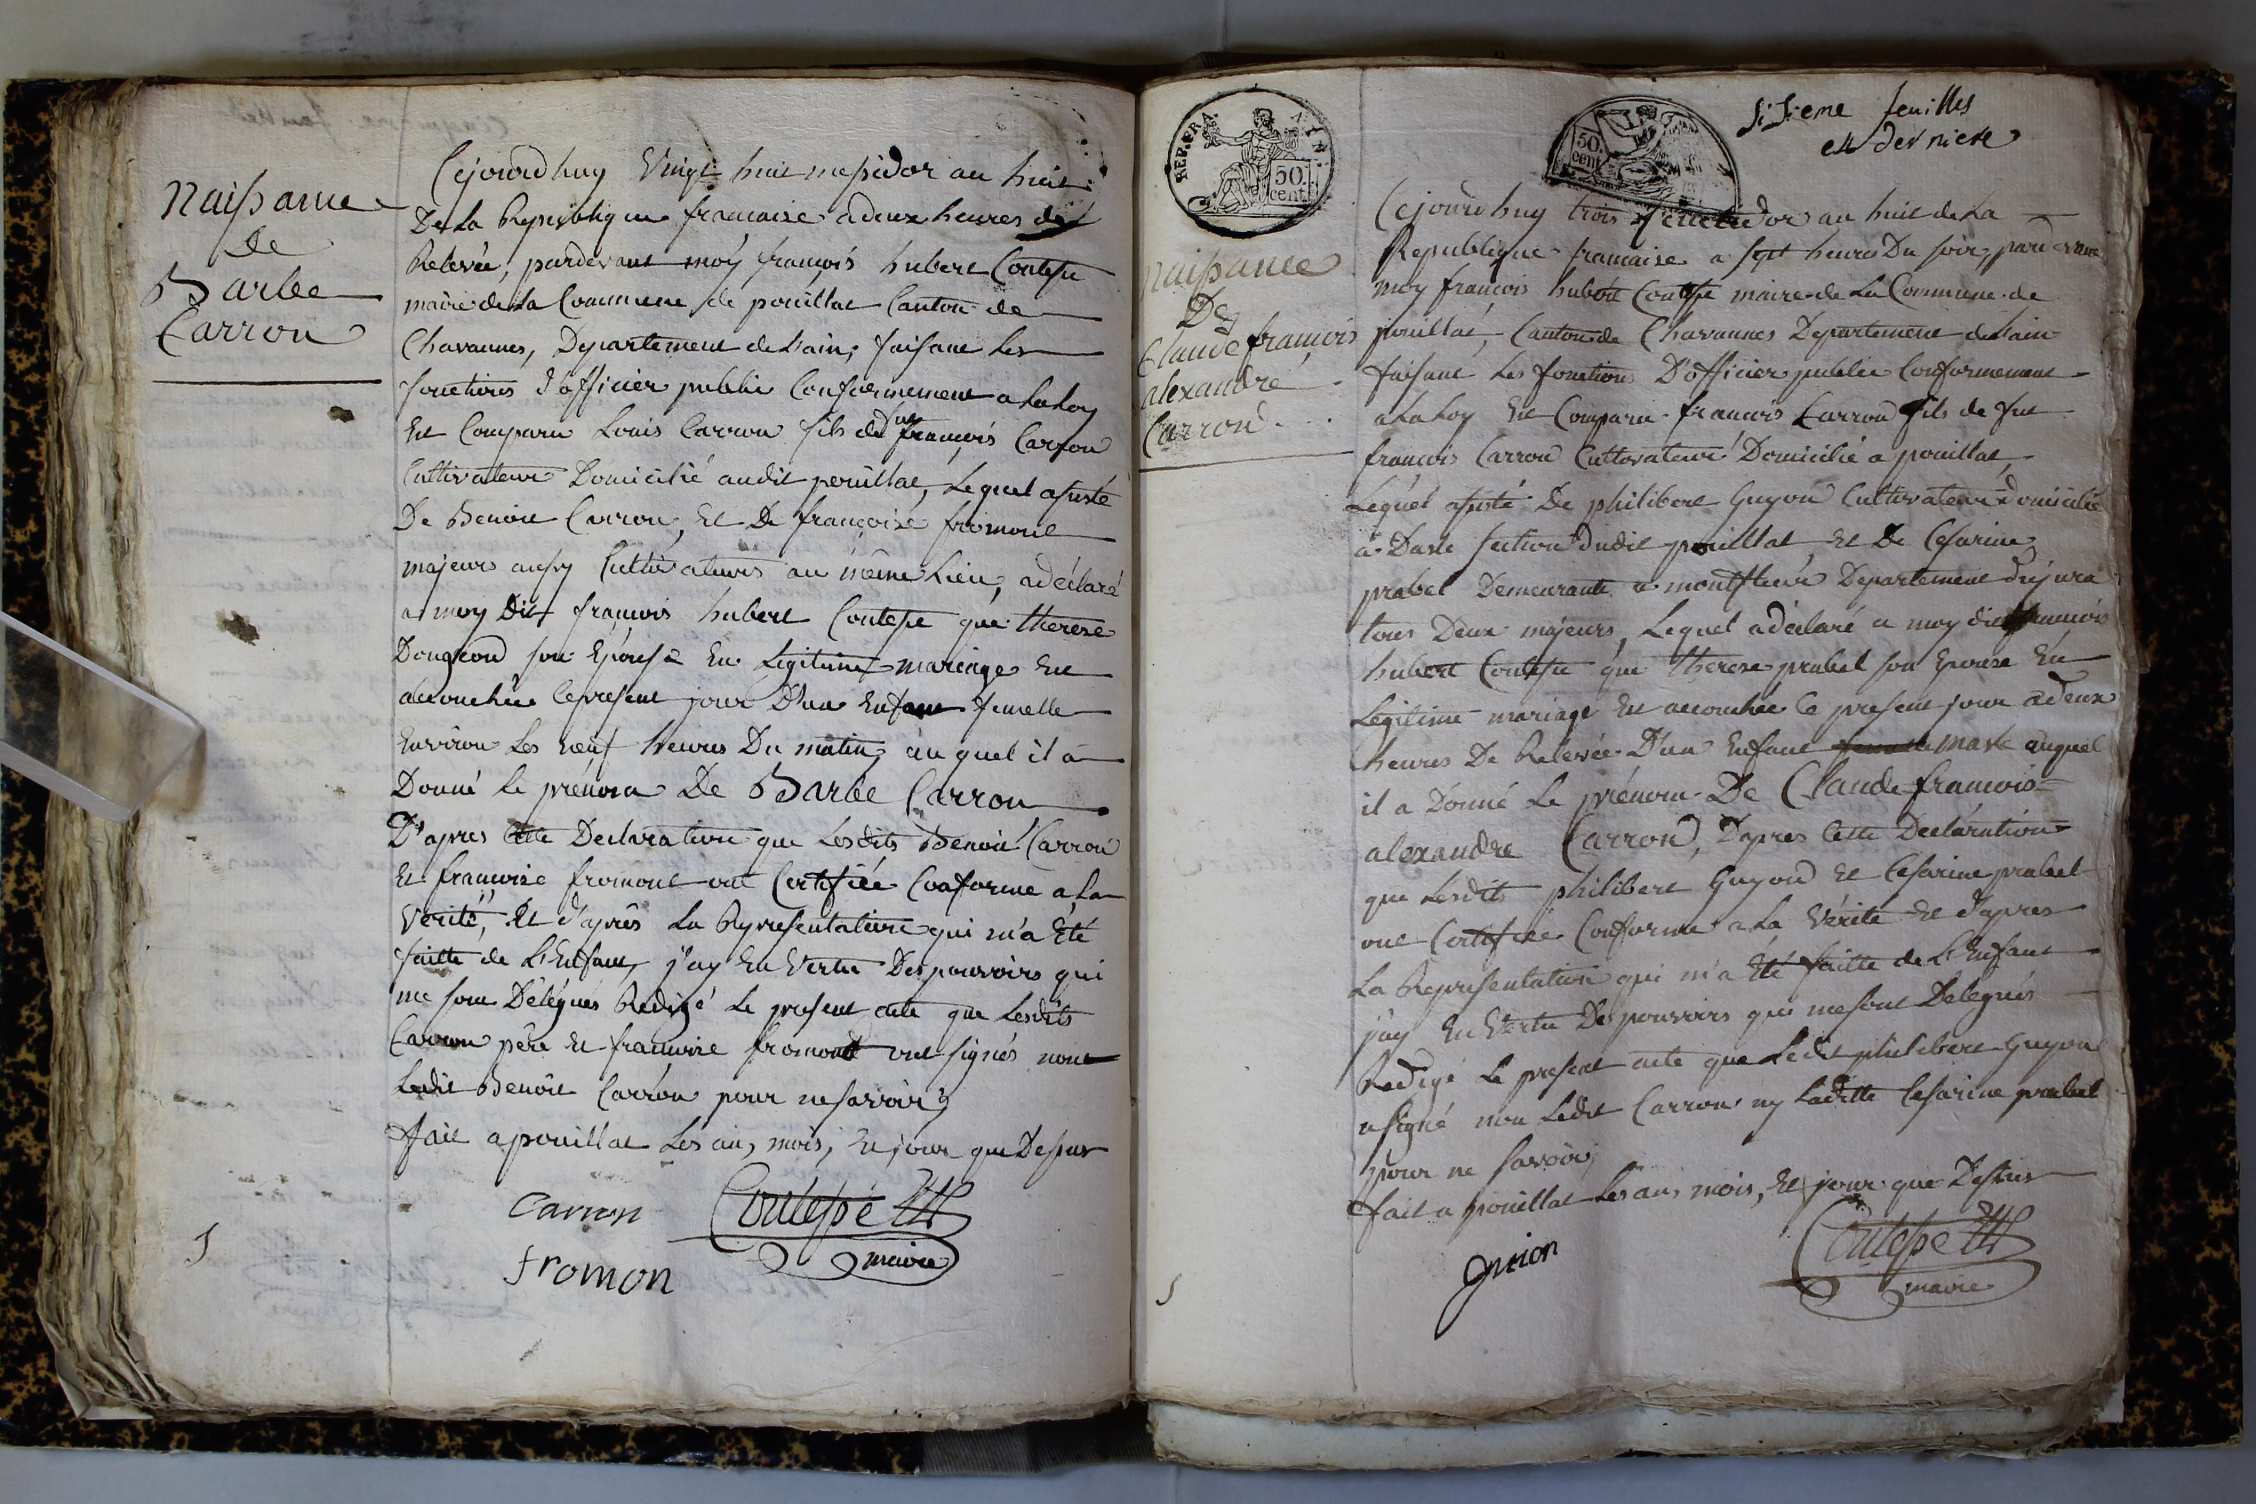 Naissance
De
Barbe
Carron
Cejourdhuy Vingt huit messidor an huit
De La Republique francaise a deux heures de
Relevée, pardevant moÿ françois hubert Contessе
maire de La Commune de pouillat Canton de
Chavannes, Departement de Lain, faisant Les
fonctions d'officier public Conformement a la Loy
Est Comparu Louis Carron fils de feu françois Carron
Cultivateur Domicilié audit pouillat, Lequel assisté
De Benoit Carron, Et De françoise fromont
majeurs aussy Cultivateurs au même Lieu, a déclaré
a moy Dit françois hubert Coutessе que therese
Dougeoud son Epouse En Legitime mariage Est
accouchée Ce present jour D'un Enfant femelle
Environ Les neuf heures Du matin, auquel il a
Donné le prénom De Barbe Carron
D'apres Cette Declaration que Lesdits Benoit Carron
Et francoise fromont ont Certifiée Conforme a la
Vérité, Et d'après La Representation qui m'a Été
faitte de L'Enfant, j'ay En Vertu Des pouvoirs qui
me sont Délégués Redigé Le present acte que Lesdits
Carron père Et francoise fromont ont signés nont
Ledit Benoit Carron pour ne savoir,
fait a pouillat Les an, mois, Et jour que Dessus
Carron Coutessé
fromon maire
REP. FRA.
50.
cent.
50.
cent
Sisieme feuilles
et derniere
Naissance
De
Claude françois
alexandre
Carron
Cejourdhuy trois Thermidor an huit de La
Republique francaise a sept heures Du soir, pardevant
moy francois hubert Coutesse maire de La Commune de
pouillat, Canton de Chavannes Departement de Lain
faisant Les fonctions D'officier public Conformement
a La Loy Est Comparu francois Carron fils de feu
francois Carron Cultivateur Domicilié a pouillat,
Lequel assisté De philibert Guyon Cultivateur domicilié
a Dasle section dudit pouillat Et De Cesarine
prabel Demeurante a montfleur Departement du jura
tous Deux majeurs, Lequel a déclaré a moy dit francois
hubert Coutesse que therese prabel son Epouse En
Legitime mariage Est accouchée Ce present jour a deux
heures De Relevée D'un Enfant femelle masle auquel
il a Donné Le prénom De Claude francois
alexandre Carron, D'apres Cette Declaration
que Lesdits philibert Guyon Et Cesarine prabel
ont Certifiée Conforme a La Vérité Et d'apres
La Représentation qui m'a Été faitte de L'Enfant
j'ay En Vertu Des pouvoirs qui me sont Delegués
Redigé Le present acte que Ledit philibert Guyon
a signé non Ledit Carron ny Laditte Cesarine prabel
pour ne savoir,
fait a pouillat Les an, mois, Et jour que Dessus
guion Coutessé
maire